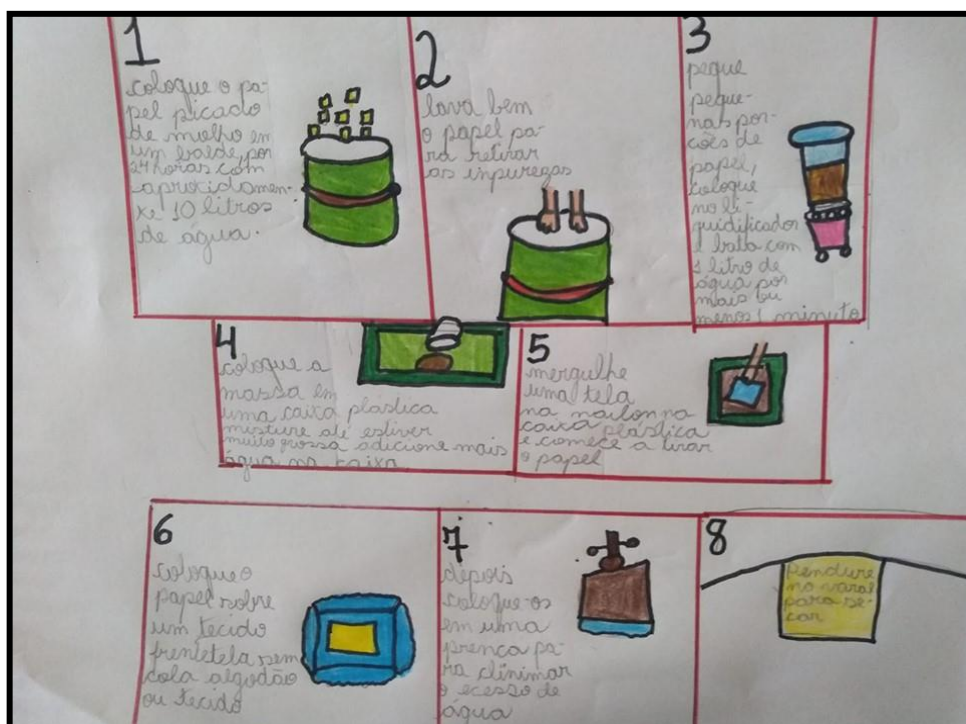 1
coloque o pa-
pel picado
de molho em
um balde, por
24 horas com
aprocidamen-
te 10 litros
de água.
2
lava bem
o papel pa-
ra retirar
as inpuregas
3
pegue
peque-
nas por-
ções de
papel,
coloque
no li-
quidificador
e batta com
1 litro de
água por
mais ou
menos 1 minuto
4
coloque a
massa em
uma caixa plástica
misture até estiver
muito grossa adicione mais
água na caixa
5
mergulhe
uma tela
na nailon na
caixa plástica
e comece a tirar
o papel
6
coloque o
papel sobre
um tecido
sem
cola algodão
ou tecido
7
depois
coloque-os
em uma
prença pa-
ra elinimar
o ecesso de
água
8
Pendure
no varal
para se-
car